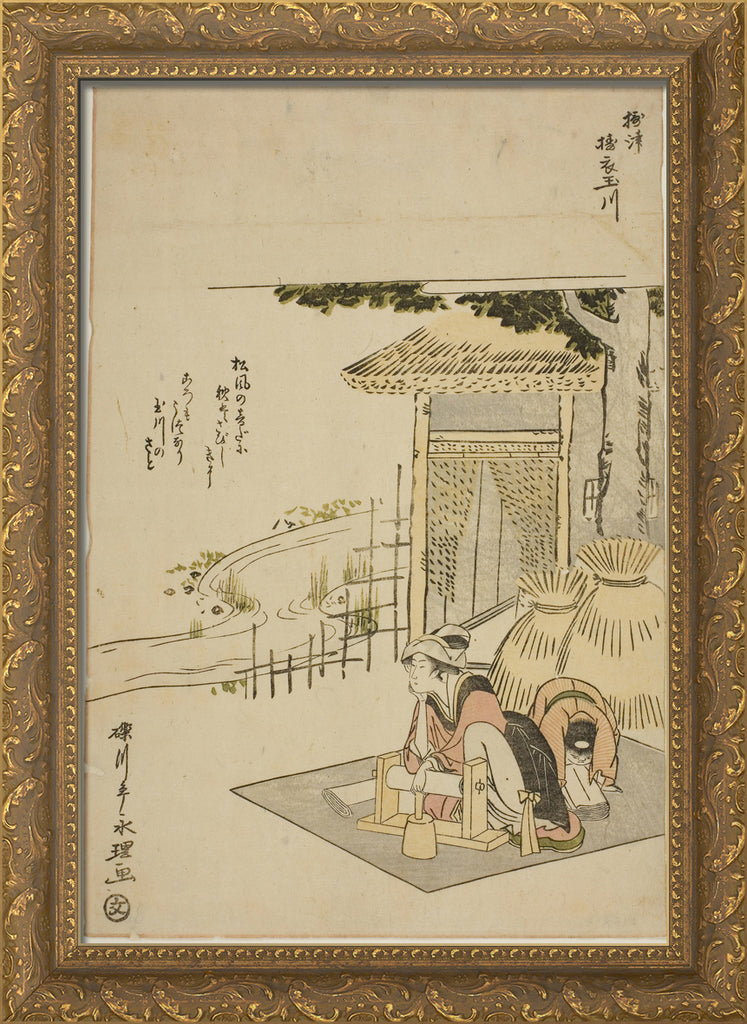 摂津
擣衣玉川
松風の音だに
秋はさびし
きに
ころも
うつなり
玉川の
さと
礫川亭永理画
文